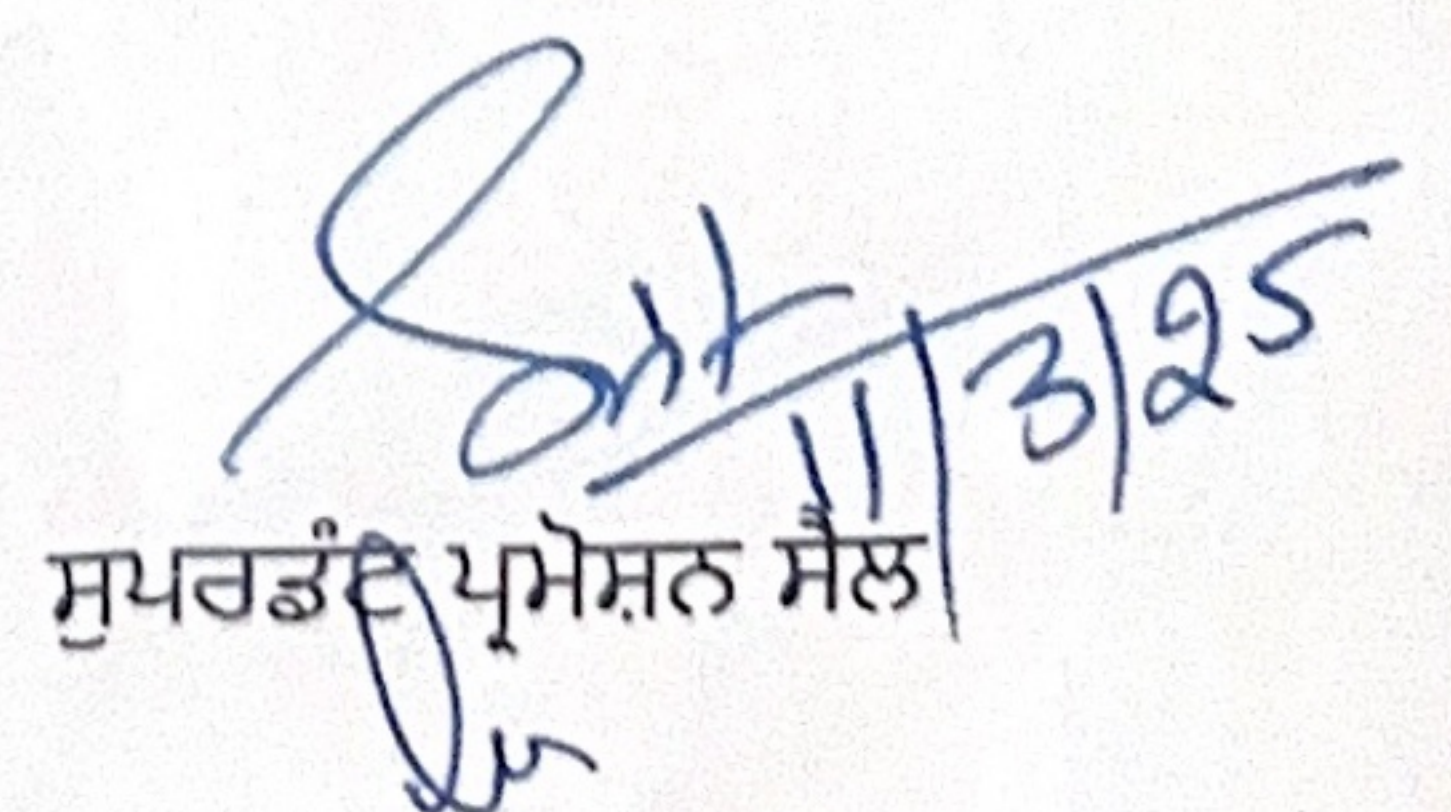 11/3/25
ਸੁਪਰਡੰਟ ਪ੍ਰਮੋਸ਼ਨ ਸੈੱਲ